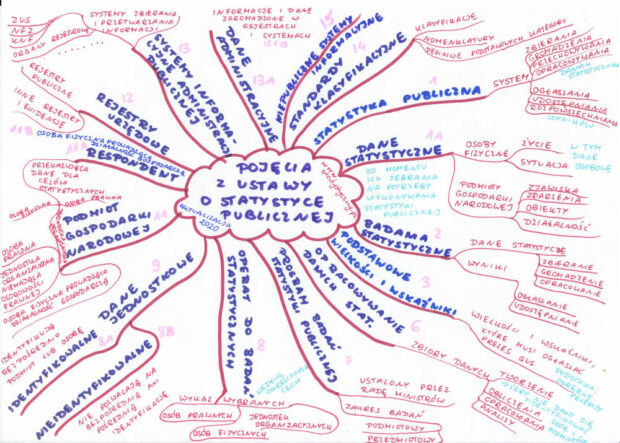 POJĘCIA
Z USTAWY
O STATYSTYCE
PUBLICZNEJ
AKTUALIZACJA
2020
1
STATYSTYKA PUBLICZNA
SYSTEM
ZBIERANIA
GROMADZENIA
PRZECHOWYWANIA
OPRACOWYWANIA
DANYCH
STATYSTYCZNYCH
OGŁASZANIA
UDOSTĘPNIANIA
ROZPOWSZECHNIANIA
WYNIKÓW
1A
DANE
STATYSTYCZNE
OD MOMENTU
ICH ZEBRANIA
NA POTRZEBY
WYKONYWANIA
STATYSTYKI
PUBLICZNEJ
OSOBY
FIZYCZNE
ŻYCIE
SYTUACJA
W TYM
DANE
OSOBOWE
PODMIOTY
GOSPODARKI
NARODOWEJ
ZJAWISKA
ZDARZENIA
OBIEKTY
DZIAŁALNOŚĆ
2
BADANIA
STATYSTYCZNE
DANE STATYSTYCZNE
WYNIKI
ZBIERANIE
GROMADZENIE
OPRACOWANIE
OGŁASZANIE
UDOSTĘPNIANIE
3
PODSTAWOWE
WIELKOŚCI I WSKAŹNIKI
WIELKOŚCI I WSKAŹNIKI,
KTÓRE MUSI OGŁASZAĆ
PREZES GUS
PODSTAWA:
ODRĘBNE
PRZEPISY
6
OPRACOWYWANIE
DANYCH STAT.
ZBIORY DANYCH
TWORZENIE
OBLICZENIA
OPRACOWANIA
ANALIZY
7
PROGRAM BADAŃ
STATYSTYKI PUBLICZNEJ
USTALONY PRZEZ
RADĘ MINISTRÓW
ZAKRES BADAŃ
PODMIOTOWY
PRZEDMIOTOWY
8
OPERAT DO BADAŃ
STATYSTYCZNYCH
WEDŁUG
OKREŚLONYCH
CECH
WYKAZ WYBRANYCH
OSÓB PRAWNYCH
JEDNOSTEK
ORGANIZACYJNYCH
OSÓB FIZYCZNYCH
9
DANE
JEDNOSTKOWE
8A
IDENTYFIKOWALNE
IDENTYFIKUJĄ
BEZPOŚREDNIO
PODMIOT LUB OSOBĘ
8B
NIEIDENTYFIKOWALNE
NIE POZWALAJĄ NA
BEZPOŚREDNIĄ ANI
POŚREDNIĄ
IDENTYFIKACJĘ
11
PODMIOT
GOSPODARKI
NARODOWEJ
OSOBA
PRAWNA
JEDNOSTKA
ORGANIZACYJNA
NIEMAJĄCA
OSOBOWOŚCI
PRAWNEJ
OSOBA FIZYCZNA PROWADZĄCA
DZIAŁALNOŚĆ GOSPODARCZĄ
11A
RESPONDENT
OSOBA FIZYCZNA PROWADZĄCA
DZIAŁALNOŚĆ GOSPODARCZĄ
OSOBA PRAWNA
PRZEKAZUJĄCA
DANE DLA
CELÓW
STATYSTYCZNYCH
11B
12
REJESTRY
URZĘDOWE
REJESTRY
PUBLICZNE
INNE REJESTRY
I EWIDENCJE
13
SYSTEMY INFORMA
CYJNE ADMINISTRACJI
PUBLICZNEJ
SYSTEMY ZBIERANIA
I PRZETWARZANIA
INFORMACJI
ZUS
NFZ
UNF
ORGANY REJESTROWE
13A
DANE
ADMINISTRACYJNE
INFORMACJE I DANE
ZGROMADZONE W
REJESTRACH
I SYSTEMACH
12 i 13
15
INFORMACYJNE
14
STANDARDY
KLASYFIKACYJNE
KLASYFIKACJE
NOMENKLATURY
DEFINICJE PODSTAWOWYCH KATEGORII